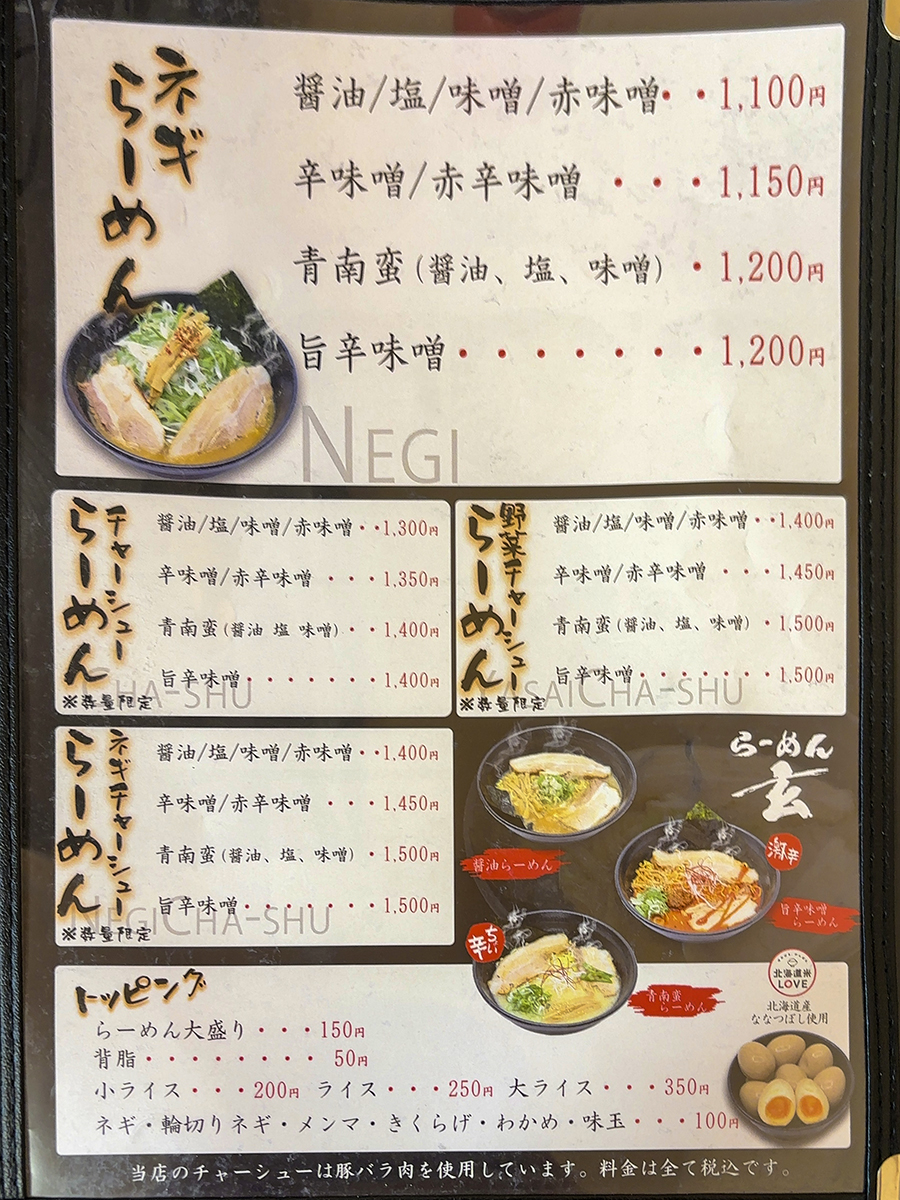 ネギ
らーめん
醤油/塩/味噌/赤味噌・・1,100円
辛味噌/赤辛味噌・・・1,150円
青南蛮(醤油、塩、味噌)・1,200円
旨辛味噌・・・・・・・1,200円
NEGI
チャーシュー
らーめん
※数量限定
醤油/塩/味噌/赤味噌・・1,300円
辛味噌/赤辛味噌・・・1,350円
青南蛮(醤油 塩 味噌)・・1,400円
旨辛味噌・・・・・・・1,400円
CHA-SHU
野菜チャーシュー
らーめん
※数量限定
醤油/塩/味噌/赤味噌・・1,400円
辛味噌/赤辛味噌・・・1,450円
青南蛮(醤油、塩、味噌)・1,500円
旨辛味噌・・・・・・・1,500円
YASAICHA-SHU
ネギチャーシュー
らーめん
※数量限定
醤油/塩/味噌/赤味噌・・1,400円
辛味噌/赤辛味噌・・・1,450円
青南蛮(醤油、塩、味噌)・1,500円
旨辛味噌・・・・・・・1,500円
NEGICHA-SHU
らーめん
玄
醤油らーめん
激辛
旨辛味噌
らーめん
ちぃ辛
青南蛮
らーめん
北海道米
LOVE
北海道産
ななつぼし使用
トッピング
らーめん大盛り・・・150円
背脂・・・・・・・・50円
小ライス・・・200円 ライス・・・250円 大ライス・・・350円
ネギ・輪切りネギ・メンマ・きくらげ・わかめ・味玉・・・100円
当店のチャーシューは豚バラ肉を使用しています。料金は全て税込です。